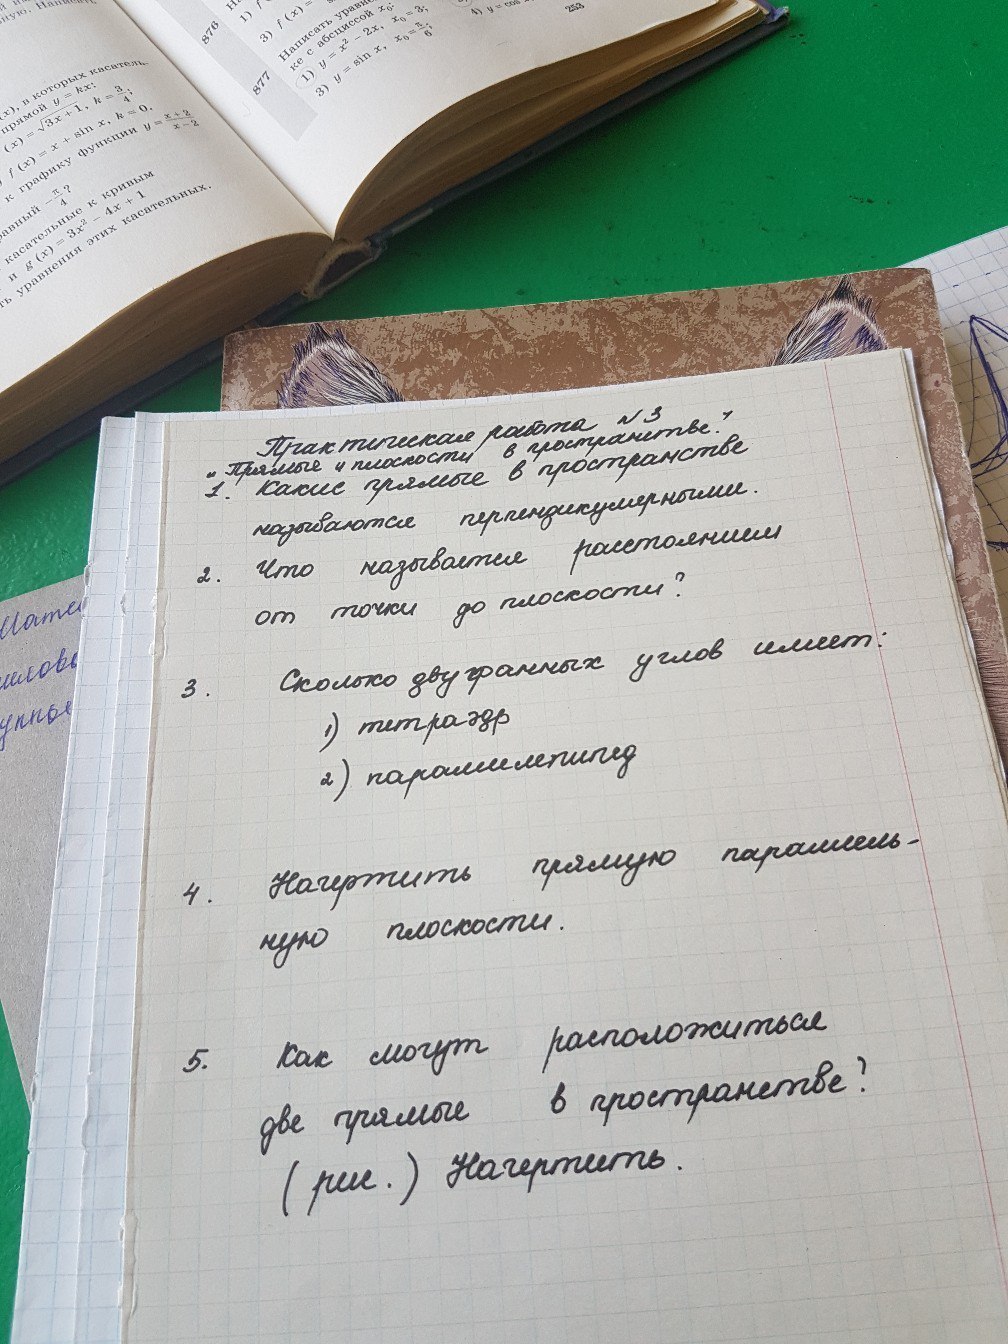 (x), в которых касатель-
прямой y = kx:
(x) = √3x + 1, k = 3/4;
f (x) = x + sin x, k = 0.
к графику функции y = x+2/x−2
равный −π/4?
касательные к кривым
и g (x) = 3x² − 4x + 1
ть уравнения этих касательных.
876
3) f (x) =
877
Написать уравнен
ке с абсциссой x₀:
1) y = x² − 2x, x₀ = 3;
3) y = sin x, x₀ = π/6;
4) y = cos
253
Практическая работа №3
"Прямые и плоскости в пространстве."
1. Какие прямые в пространстве
называются перпендикулярными.
2. Что называется расстоянием
от точки до плоскости?
3. Сколько двугранных углов имеет:
1) тетраэдр
2) параллелепипед
4. Начертить прямую параллель-
ную плоскости.
5. Как могут расположиться
две прямые в пространстве?
(рис.) Начертить.